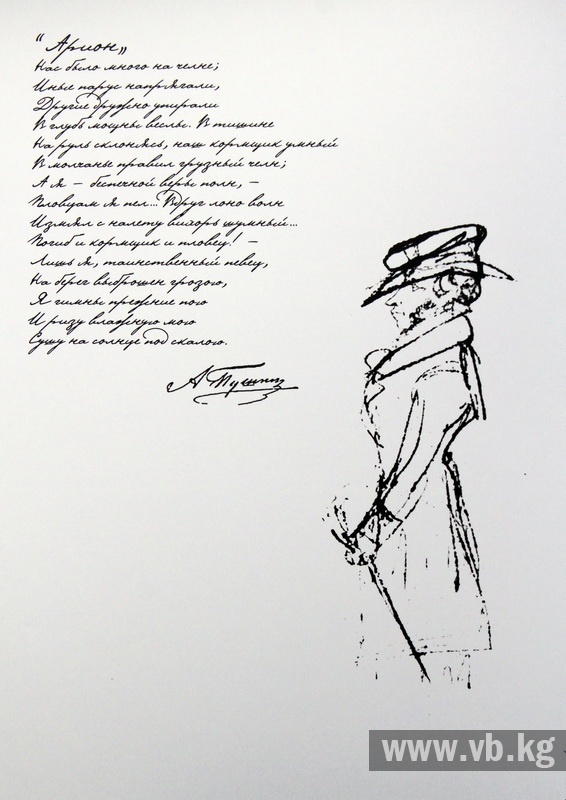 “Арион„
Нас было много на челне;
Иные парус напрягали,
Другие дружно упирали
В глубь мощны веслы. В тишине
На руль склонясь, наш кормщик умный
В молчаньи правил грузный челн;
А я – беспечной веры полн, –
Пловцам я пел... Вдруг лоно волн
Измял с налету вихорь шумный...
Погиб и кормщик и пловец! –
Лишь я, таинственный певец,
На берег выброшен грозою,
Я гимны прежние пою
И ризу влажную мою
Сушу на солнце под скалою.
А Пушкин
www.vb.kg